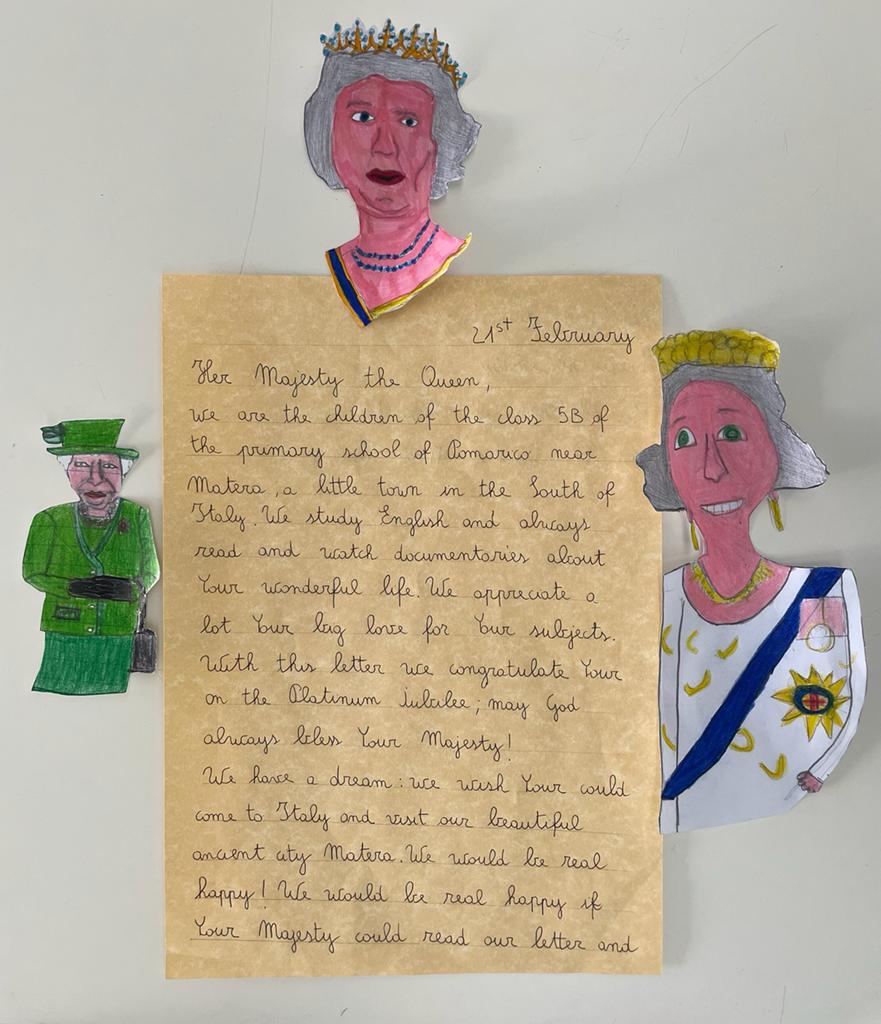 21st February
Her Majesty the Queen,
we are the children of the class 5B of
the primary school of Pomarico near
Matera, a little town in the South of
Italy. We study English and always
read and watch documentories about
Your wonderful life. We appreciate a
lot Your big love for Your subjects.
With this letter we congratulate Your
on the Platinum iubilee; may God
always bless Your Majesty!
We have a dream: we wish Your could
come to Italy and visit our beautiful
ancient city Matera. We would be real
happy! We would be real happy if
Your Majesty could read our letter and